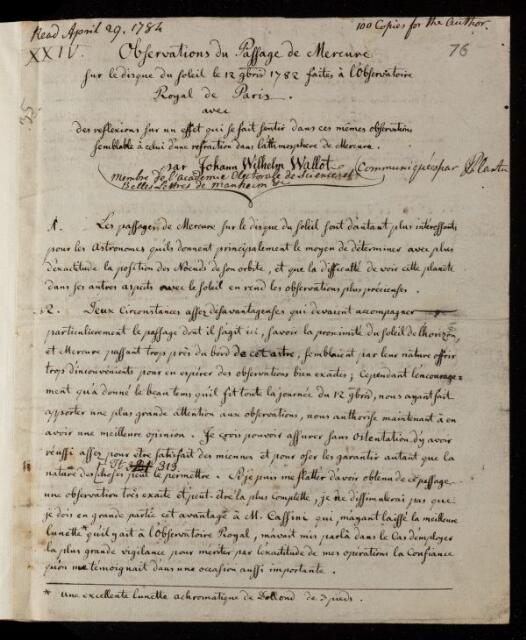 Read April 29. 1784
100 Copies for the Author.
XXIV.
76
Observations du Passage de Mercure
sur le disque du Soleil le 12 9bris 1782 faites à l'Observatoire
Royal de Paris.
avec
des reflexions sur un effet qui se fait sentir dans ces mêmes observations
semblable à celui d'une refraction dans l'athmosphere de Mercure.
par Johann Wilhelm Wallot
Communiqué par
Membre de l'academie Electorale de Sciences et
Belles Lettres de Manheim &c
1. Les passages de Mercure sur le disque du Soleil sont d'autant plus interessants
pour les Astronomes qu'ils donnent principalement le moyen de déterminer avec plus
d'exactitude la position des Noeuds de son orbite, et que la difficulté de voir cette planete
dans ses autres aspects avec le Soleil en rend les observations plus précieuses.
2. Deux Circonstances assez désavantageuses qui devaient accompagner
particulierement le passage dont il s'agit ici, savoir la proximité du Soleil de l'horizon,
et Mercure passant trop près du bord de cet astre, semblaient par leur nature offrir
trop d'inconvénients pour en espérer des observations bien exactes; Cependant l'encourage=
ment qu'a donné le beau tems qu'il fit toute la journée du 12 9bris, nous ayant fait
apporter une plus grande attention aux observations, nous authorise maintenant à en
avoir une meilleure opinion. Je crois pouvoir assurer sans ostentation d'y avoir
réussi assez pour être satisfait des miennes et pour oser les garantir autant que la
nature des choses peut le permettre. Si je puis me flatter d'avoir obtenu de ce passage
313.
une observation très exacte et peut-être la plus complette, je ne dissimulerai pas que
je dois en grande partie cet avantage à M. Cassini qui, m'ayant laissé la meilleure
lunette* qu'il y ait à l'Observatoire Royal, m'avait mis par là dans le Cas d'employer
la plus grande vigilance pour meriter par l'exactitude de mes opérations la Confiance
qu'on me témoignait dans une occasion aussi importante.
* Une excellente lunette achromatique de Dollond de 3 pieds.